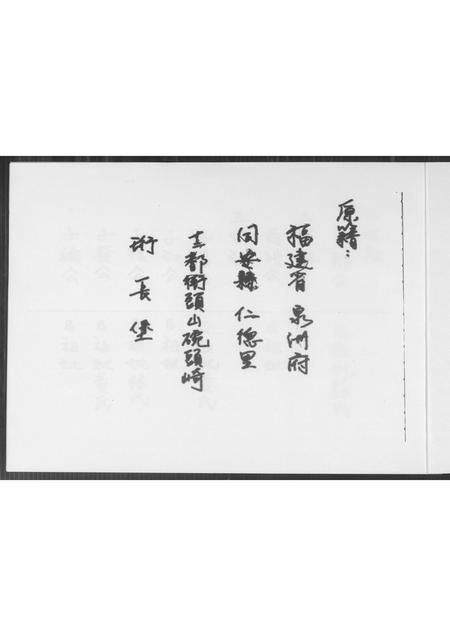 原籍：
福建省 泉州府
同安縣 仁德里
都衙頭山碗頭崎
長堡